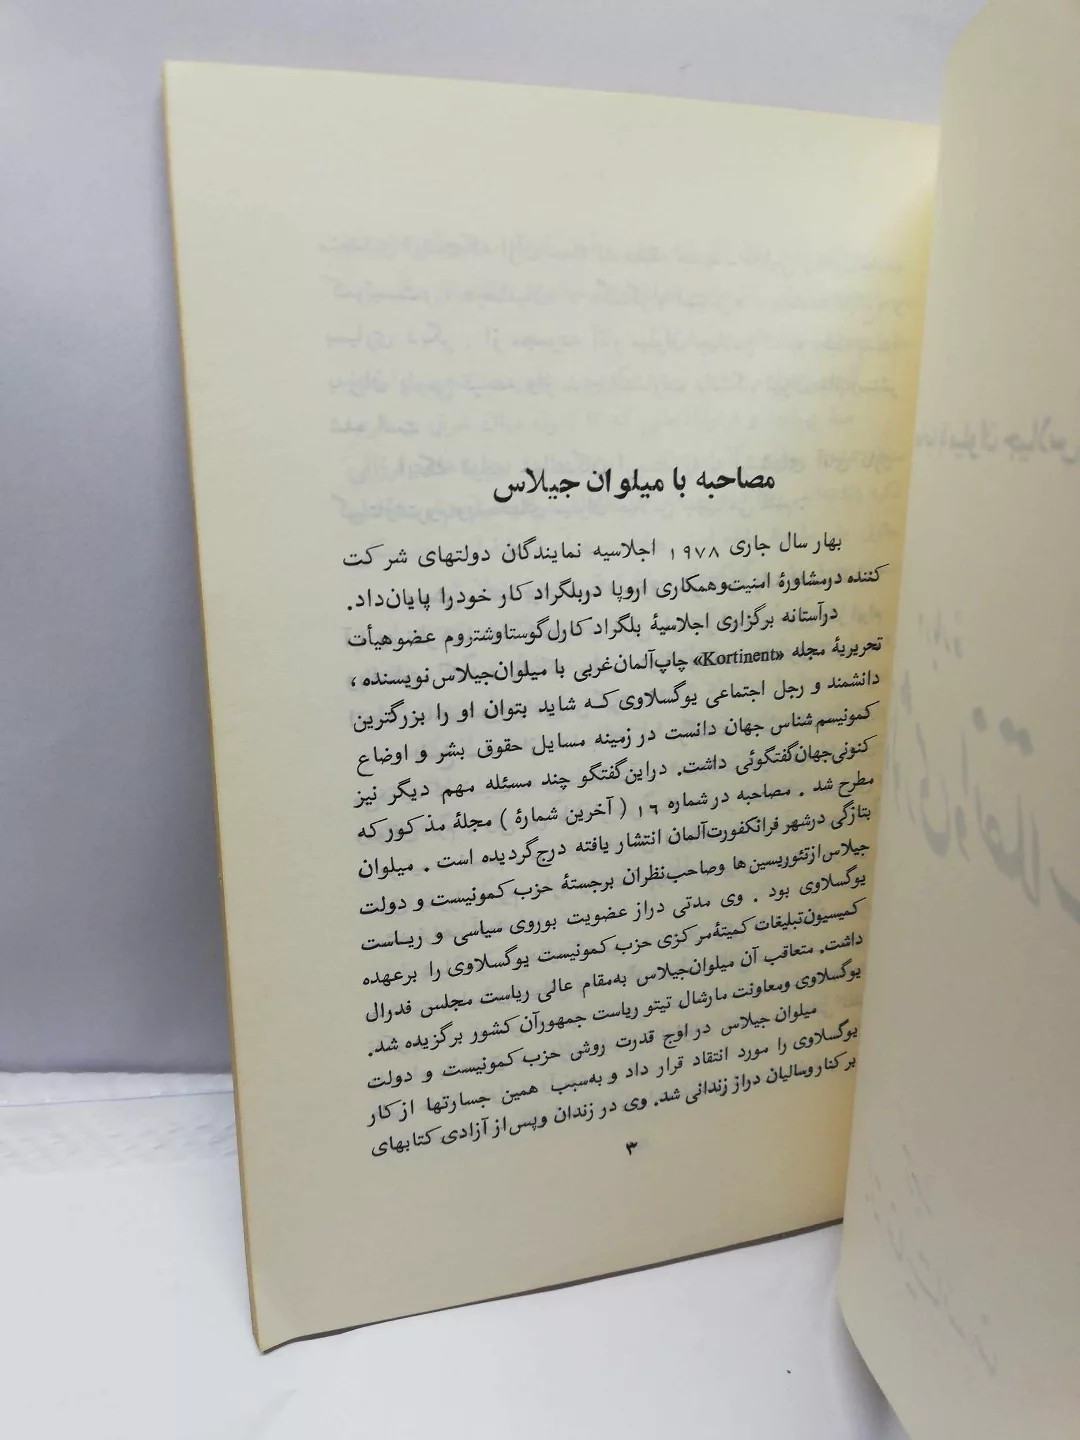 مصاحبه با میلوان جیلاس
بهار سال جاری ۱۹۷۸ اجلاسیه نمایندگان دولتهای شرکت
کننده درمشاورهٔ امنیت‌وهمکاری اروپا دربلگراد کار خودرا پایان‌داد.
درآستانه برگزاری اجلاسیهٔ بلگراد کارل‌گوستاوشتروم عضوهیأت
تحریریهٔ مجله «Kortinent» چاپ‌آلمان‌غربی با میلوان‌جیلاس‌نویسنده ،
دانشمند و رجل اجتماعی یوگسلاوی کـه شاید بتوان او را بزرگترین
کمونیسم شناس جهان دانست در زمینه مسایل حقوق بشر و اوضاع
کنونی‌جهان‌گفتگوئی داشت. دراین‌گفتگو چند مسئله مهم دیگر نیز
مطرح شد . مصاحبه درشماره ۱۶ ( آخرین شمارهٔ ) مجلهٔ مذکورکه
بتازگی درشهر فرانکفورت‌آلمان انتشار یافته درج‌گردیده است . میلوان
جیلاس‌ازتئوریسین‌ها وصاحب‌نظران برجستهٔ حزب کمونیست و دولت
یوگسلاوی بود . وی مدتی دراز عضویت بوروی سیاسی و ریـاست
کمیسیون‌تبلیغات کمیتهٔ‌مرکزی حزب کمونیست یوگسلاوی را برعهده
داشت. متعاقب آن میلوان‌جیلاس به‌مقام عالی ریاست مجلس فدرال
یوگسلاوی ومعاونت مارشال تیتو ریاست جمهورآن کشور برگزیده شد.
میلوان جیلاس در اوج قدرت روش حزب کمونیست و دولت
یوگسلاوی را مورد انتقاد قرار داد و به‌سبب همین جسارتها ازکار
برکناروسالیان دراز زندانی شد. وی در زندان وپس‌از آزادی کتابهای
۳